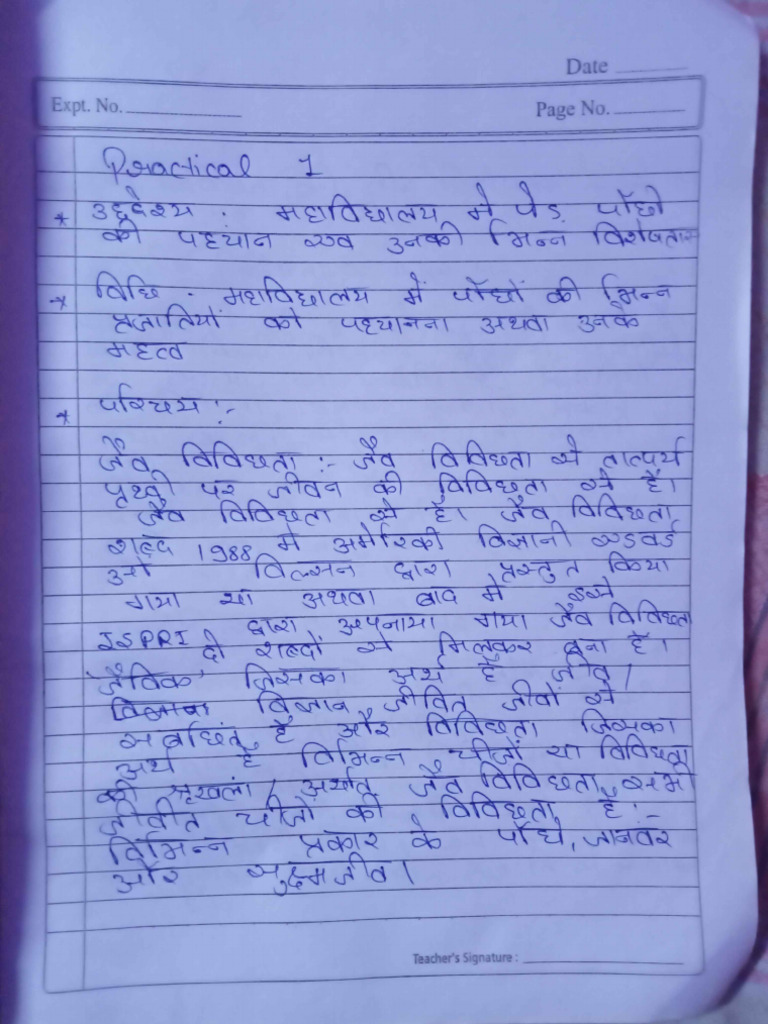 Date
Expt. No.
Page No.
Practical 1
* उद्देश्य : महाविद्यालय मे पेड़ पौंधो
की पहचान एव उनकी भिन्न विशेषताए
* विधि - महाविद्यालय में पौंधों की भिन्न
प्रजातियों को पहचानना अथवा उनके
महत्व
* परिचय :-
जैव विविधता :- जैव विविधता से तात्पर्य
पृथ्वी पर जीवन की विविधता से है।
जैव विविधता से है। जैव विविधता
शब्द 1988 मे अमेरिकी विज्ञानी एडवर्ड
ओ विल्सन द्वारा प्रस्तुत किया
गया था अथवा बाद मे इसे
ISPRI द्वारा अपनाया गया जैव विविधता
दो शब्दों से मिलकर बना है।
'जैविक' जिसका अर्थ है जीव /
विज्ञान जीवित जीवों से
सबंधित है और विविधता जिसका
अर्थ है विभिन्न चीजों या विविधता
की श्रृखला / अर्थात् जैव विविधता सभी
जीवीत चीजो की विविधता है :-
विभिन्न प्रकार के पौधे, जानवर
और सुक्ष्मजीव।
Teacher's Signature :